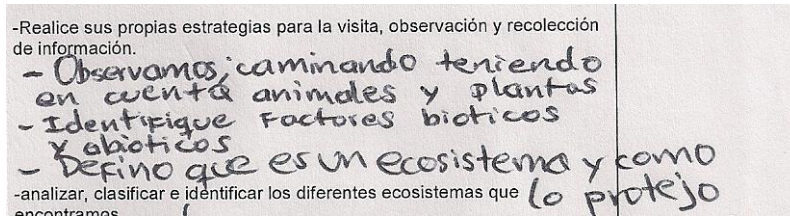 -Realice sus propias estrategias para la visita, observación y recolección
de información.
- Observamos, caminando teniendo
en cuenta animales y plantas
- Identifique Factores bioticos
y abioticos
- Defino que es un ecosistema y como
lo protejo
-analizar, clasificar e identificar los diferentes ecosistemas que
encontramos.